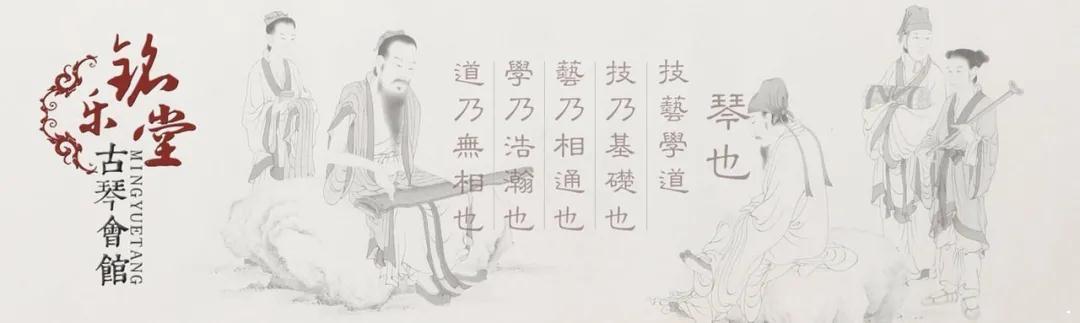 铭乐堂
古琴會館
MINGYUETANG
琴也
技藝學道
技乃基礎也
藝乃相通也
學乃浩瀚也
道乃無相也